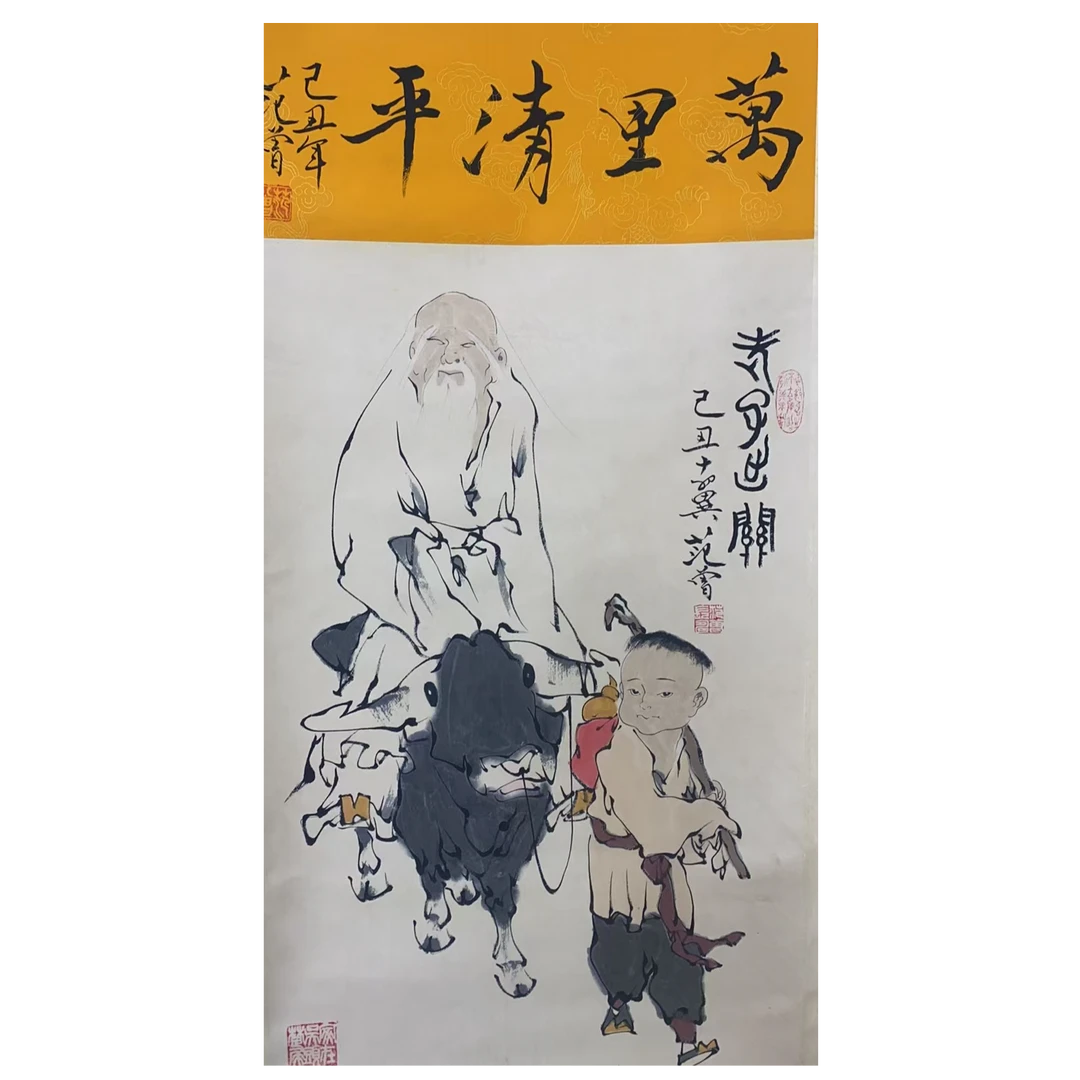 萬里清平
己丑年
范曾
老子出關
己丑十翼范曾